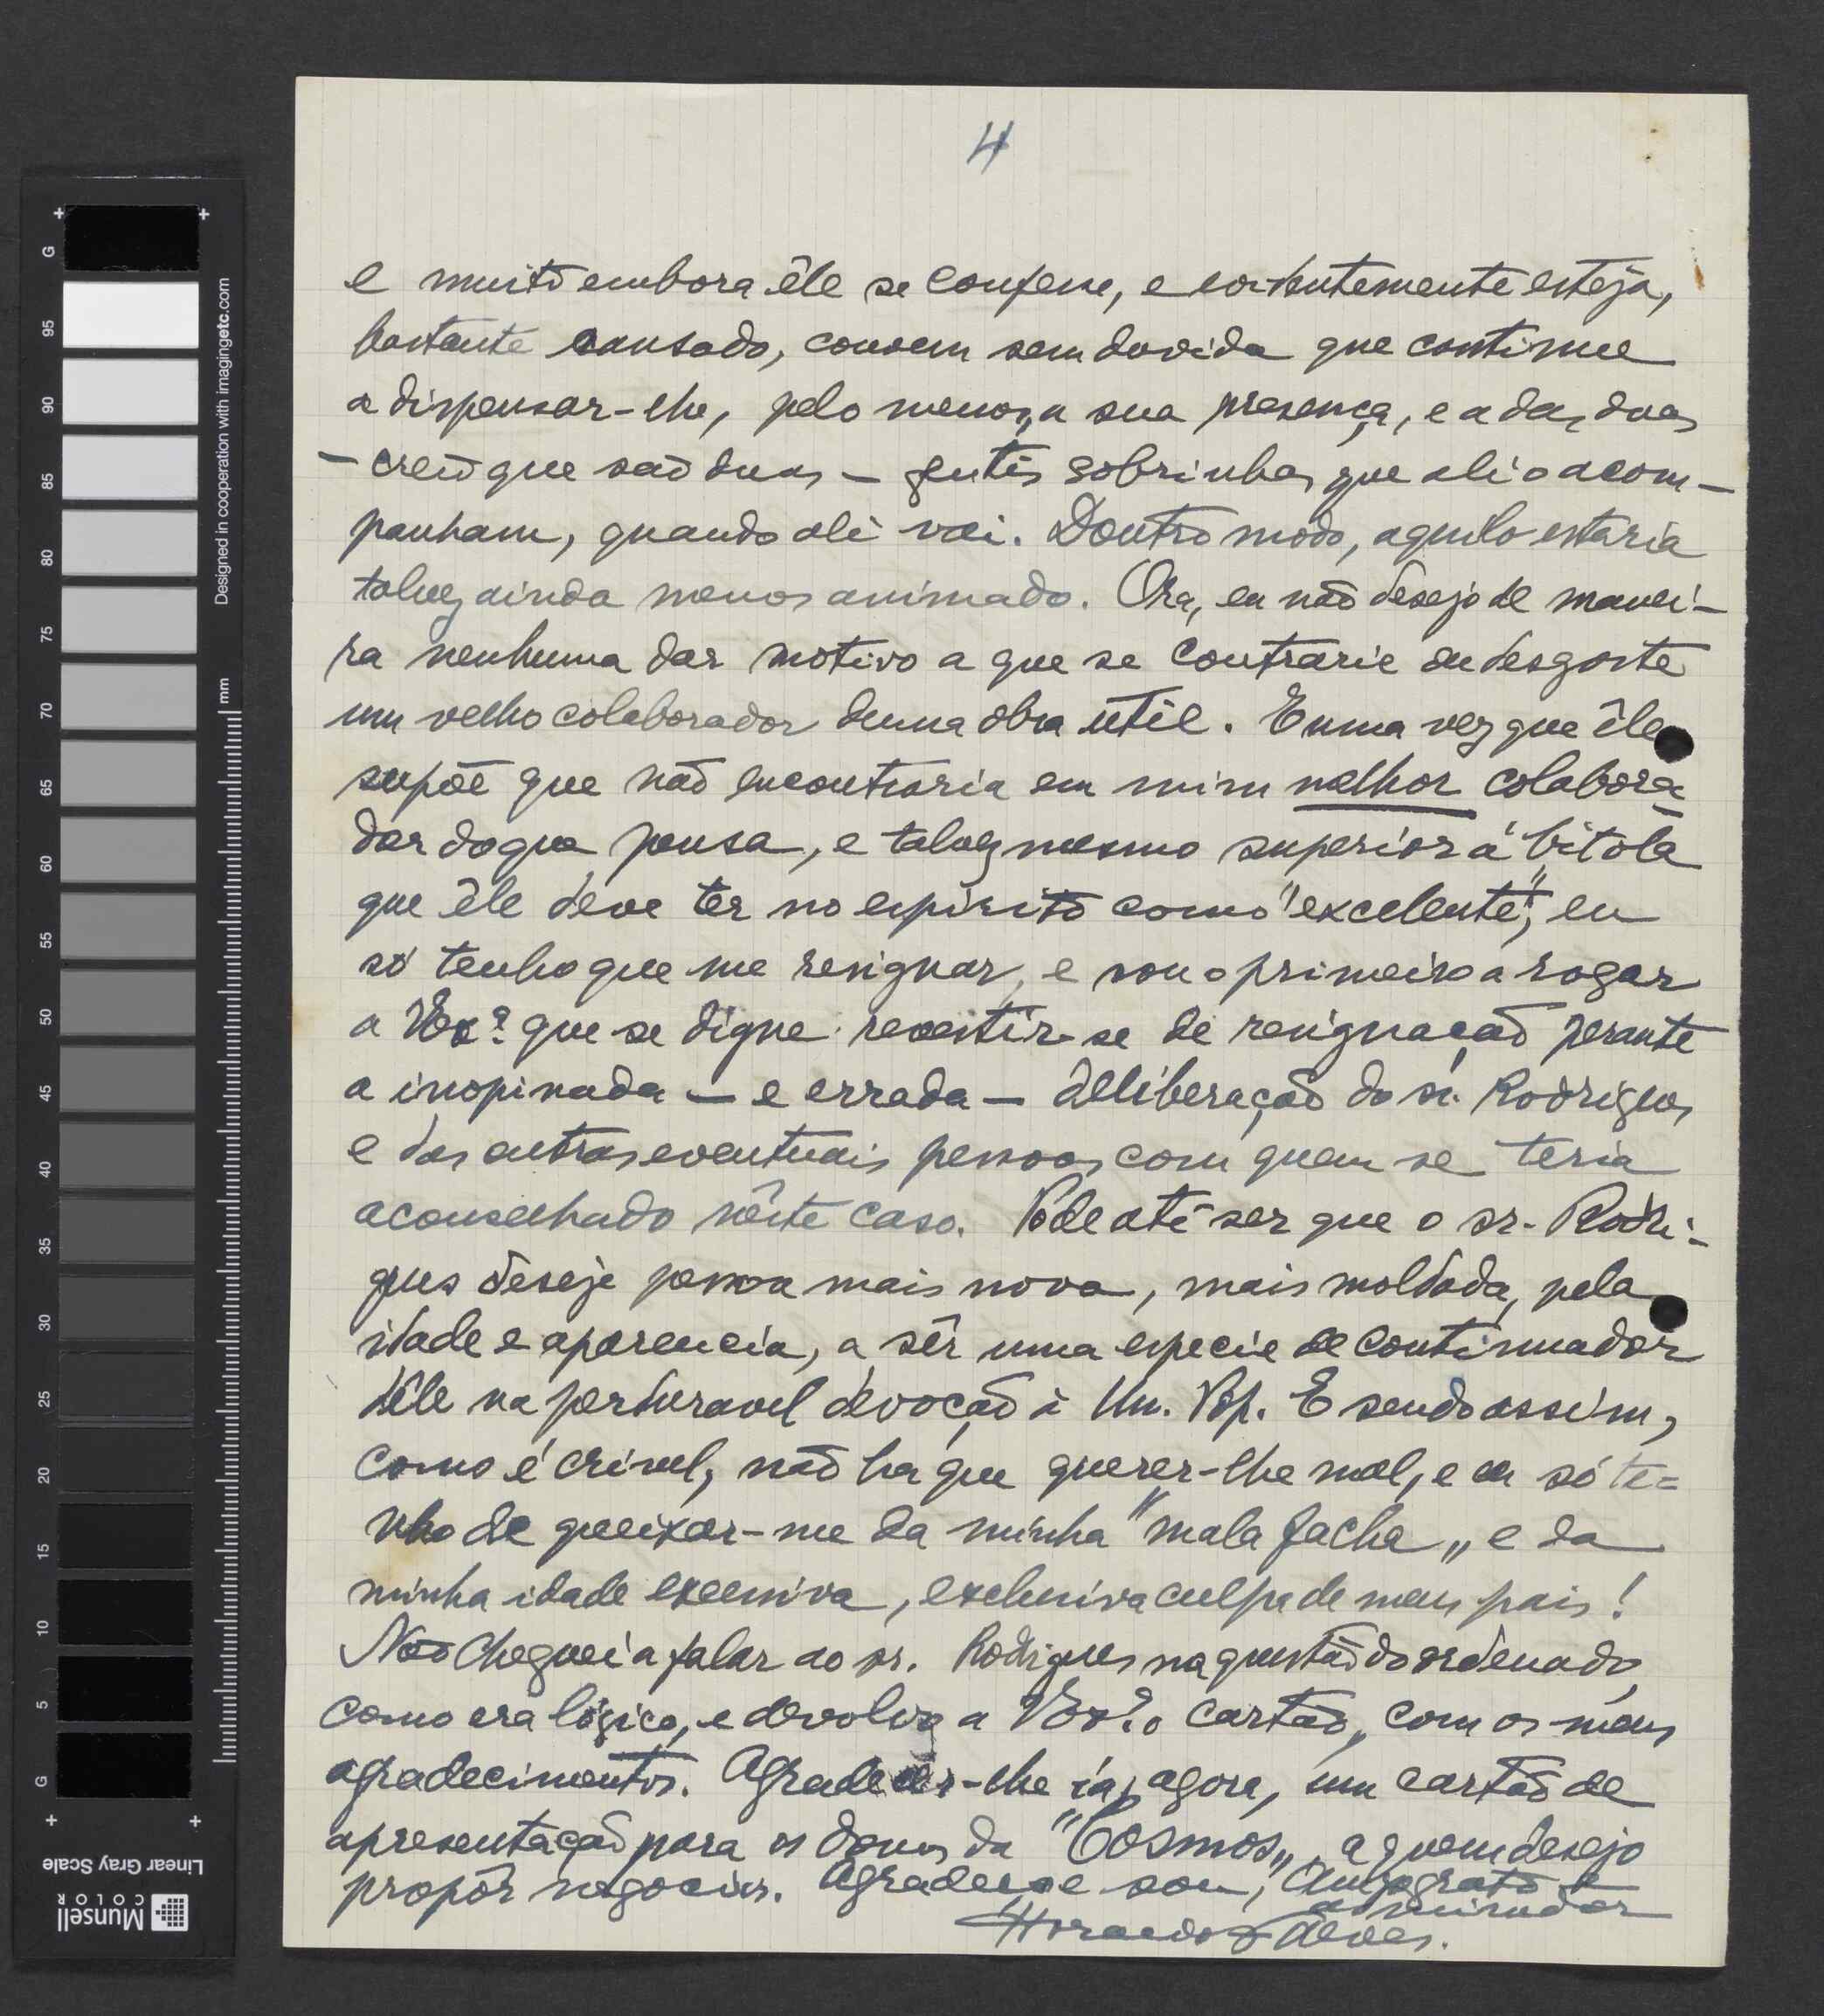 4
e muito embora êle se confesse, e evidentemente esteja,
bastante cansado, convem sem duvida que continue
a dispensar-lhe, pelo menos, a sua presença, e a das duas
— creio que são duas — gentis sobrinhas que ali o acom-
panham, quando ali vai. Doutro modo, aquilo estaria
talvez ainda menos animado. Ora, eu não desejo de manei-
ra nenhuma dar motivo a que se contrarie ou desgoste
um velho colaborador duma obra útil. E uma vez que êle
supõe que não encontraria em mim melhor colabora-
dor do que pensa, e talvez mesmo superior á bitola
que êle deve ter no espirito como "excelente", eu
só tenho que me resignar, e sou o primeiro a rogar
a V Exª. que se digne revestir-se de resignação perante
a inopinada — e errada — deliberação do sr. Rodrigues
e das outras eventuais pessoas com quem se teria
aconselhado nêste caso. Pode até ser que o sr. Rodri-
gues deseje pessoa mais nova, mais moldada, pela
idade e aparencia, a sêr uma especie de continuador
dêle na perduravel devoção á Un. Pop. E sendo assim,
como é crivel, não ha que querer-lhe mal, e eu só te=
nho de queixar-me da minha "mala facha„ e da
minha idade excessiva, exclusiva culpa de meus pais!
Não cheguei a falar ao sr. Rodrigues na questão do ordenado,
como era lógico, e devolvo a V Exª. o cartão, com os meus
agradecimentos. Agradecer-lhe ia, agora, um cartão de
apresentação para os donos da "Cosmos„, a quem desejo
propôr negocios. Agradece e sou, Amº grato e
admirador
Horacio Alves.
Designed in cooperation with imagingetc.com
mm
G
95
90
85
80
75
70
65
60
55
50
45
40
35
30
25
20
15
10
5
G
Linear Gray Scale
Munsell
COLOR